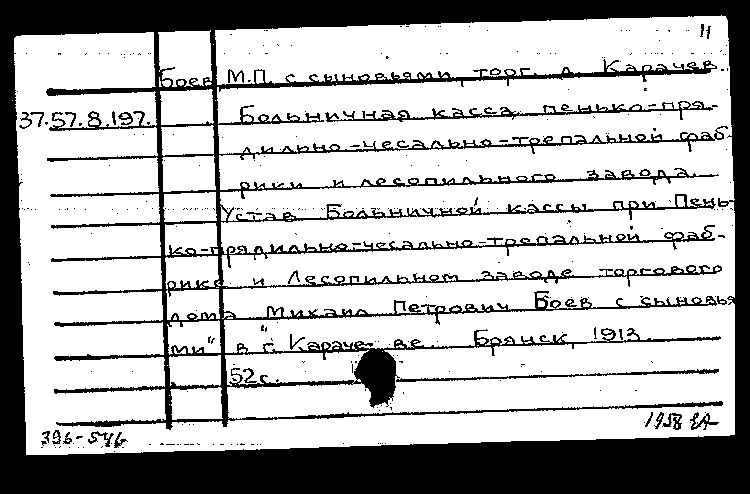 11
Боев, М.П. с сыновьями, торг. д. Карачев.
37.57.8.197. Больничная касса пенько-пря-
дильно-чесально-трепальной фаб-
рики и лесопильного завода.
Устав Больничной кассы при Пень-
ко-прядильно-чесально-трепальной фаб-
рике и Лесопильном заводе торгового
дома Михаил Петрович Боев с сыновья
ми" в г. Караче- ве. Брянск, 1913.
52 с.
396-546
1958